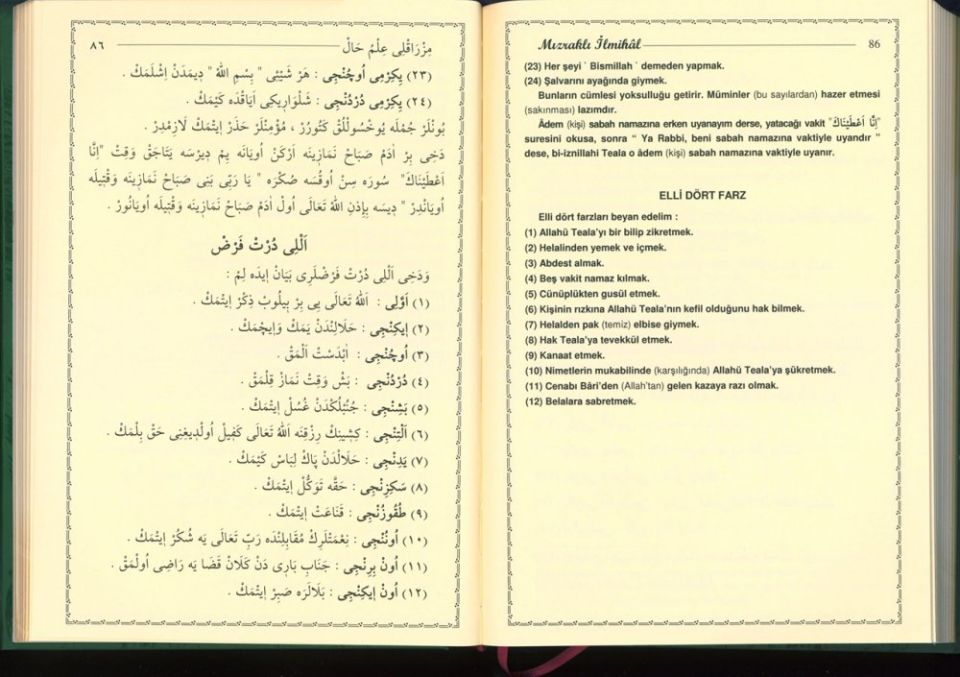 ٨٦ مِزْرَاقْلِى عِلْمِ حَالْ
(٢٣) يِكِرْمِى اُوچُنْجِى : هَرْ شَيْئِى " بِسْمِ اللهْ " دِيمَدَنْ اِشْلَمَكْ .
(٢٤) يِكِرْمِى دُرْدُنْجِى : شَلْوَارِيكِى اَيَاقْدَه كَيْمَكْ .
بُونْلَرْ جُمْلَه يُوخْسُولْلُقْ كَتُورُرْ ، مُؤْمِنْلَرْ حَذَرْ اِيتْمَكْ لَازِمْدِرْ .
دَخِى بِرْ اٰدَمْ صَبَاحْ نَمَازِينَه اَرْكَنْ اُويَانَه يِمْ دِيرْسَه يَتَاجَقْ وَقِتْ "اِنَّا
اَعْطَيْنَاكَ" سُورَه سِنْ اُوقُسَه صُكْرَه " يَا رَبِّى بَنِى صَبَاحْ نَمَازِينَه وَقْتِيلَه
اُويَانْدِرْ " دِيسَه بِاِذْنِ اللهْ تَعَالَى اُولْ اٰدَمْ صَبَاحْ نَمَازِينَه وَقْتِيلَه اُويَانُورْ .
اَلْلِى دُرْتْ فَرْضْ
وَدَخِى اَلْلِى دُرْتْ فَرْضْلَرِى بَيَانْ اِيدَه لِمْ :
(١) اَوَّلِى : اللهْ تَعَالَى يِى بِرْ بِيلُوبْ ذِكْرْ اِيتْمَكْ .
(٢) اِيكِنْجِى : حَلَالِنْدَنْ يَمَكْ وَاِيچْمَكْ .
(٣) اُوچُنْجِى : اٰبْدَسْتْ اَلْمَقْ .
(٤) دُرْدُنْجِى : بَشْ وَقِتْ نَمَازْ قِلْمَقْ .
(٥) بَشِنْجِى : جُنُبْلُكْدَنْ غُسُلْ اِيتْمَكْ .
(٦) اَلْتِنْجِى : كِشِينِكْ رِزْقِنَه اللهْ تَعَالَى كَفِيلْ اُولْدِيغِنِى حَقْ بِلْمَكْ .
(٧) يَدِنْجِى : حَلَالْدَنْ پَاكْ لِبَاسْ كَيْمَكْ .
(٨) سَكِزِنْجِى : حَقَّه تَوَكُّلْ اِيتْمَكْ .
(٩) طُقُوزُنْجِى : قَنَاعَتْ اِيتْمَكْ .
(١٠) اُونُنْجِى : نِعْمَتْلَرِكْ مُقَابِلِنْدَه رَبِّ تَعَالَى يَه شُكُرْ اِيتْمَكْ .
(١١) اُونْ بِرِنْجِى : جَنَابِ بَارِى دَنْ كَلَانْ قَضَا يَه رَاضِى اُولْمَقْ .
(١٢) اُونْ اِيكِنْجِى : بَلَالَرَه صَبِرْ اِيتْمَكْ .
Mızraklı İlmihâl 86
(23) Her şeyi ` Bismillah ` demeden yapmak.
(24) Şalvarını ayağında giymek.
Bunların cümlesi yoksulluğu getirir. Müminler (bu sayılardan) hazer etmesi
(sakınması) lazımdır.
Âdem (kişi) sabah namazına erken uyanayım derse, yatacağı vakit "اِنَّا اَعْطَيْنَاكَ"
suresini okusa, sonra " Ya Rabbi, beni sabah namazına vaktiyle uyandır "
dese, bi-iznillahi Teala o âdem (kişi) sabah namazına vaktiyle uyanır.
ELLİ DÖRT FARZ
Elli dört farzları beyan edelim :
(1) Allahü Teala'yı bir bilip zikretmek.
(2) Helalinden yemek ve içmek.
(3) Abdest almak.
(4) Beş vakit namaz kılmak.
(5) Cünüplükten gusül etmek.
(6) Kişinin rızkına Allahü Teala'nın kefil olduğunu hak bilmek.
(7) Helalden pak (temiz) elbise giymek.
(8) Hak Teala'ya tevekkül etmek.
(9) Kanaat etmek.
(10) Nimetlerin mukabilinde (karşılığında) Allahü Teala'ya şükretmek.
(11) Cenabı Bâri'den (Allah'tan) gelen kazaya razı olmak.
(12) Belalara sabretmek.